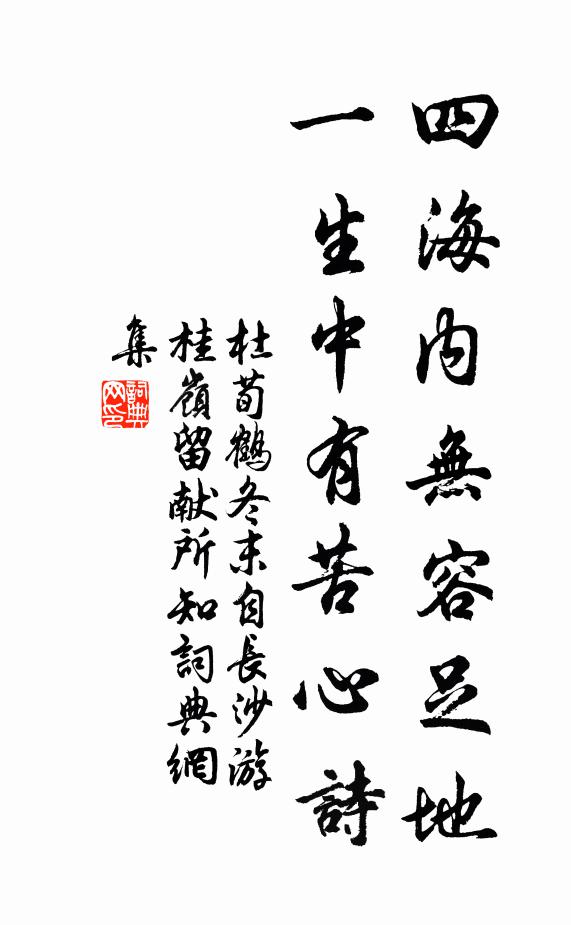 四海内無容足地
一生中有苦心詩
杜荀鶴冬末自長沙游
桂嶺留献所知詞典網
集
詞典网印